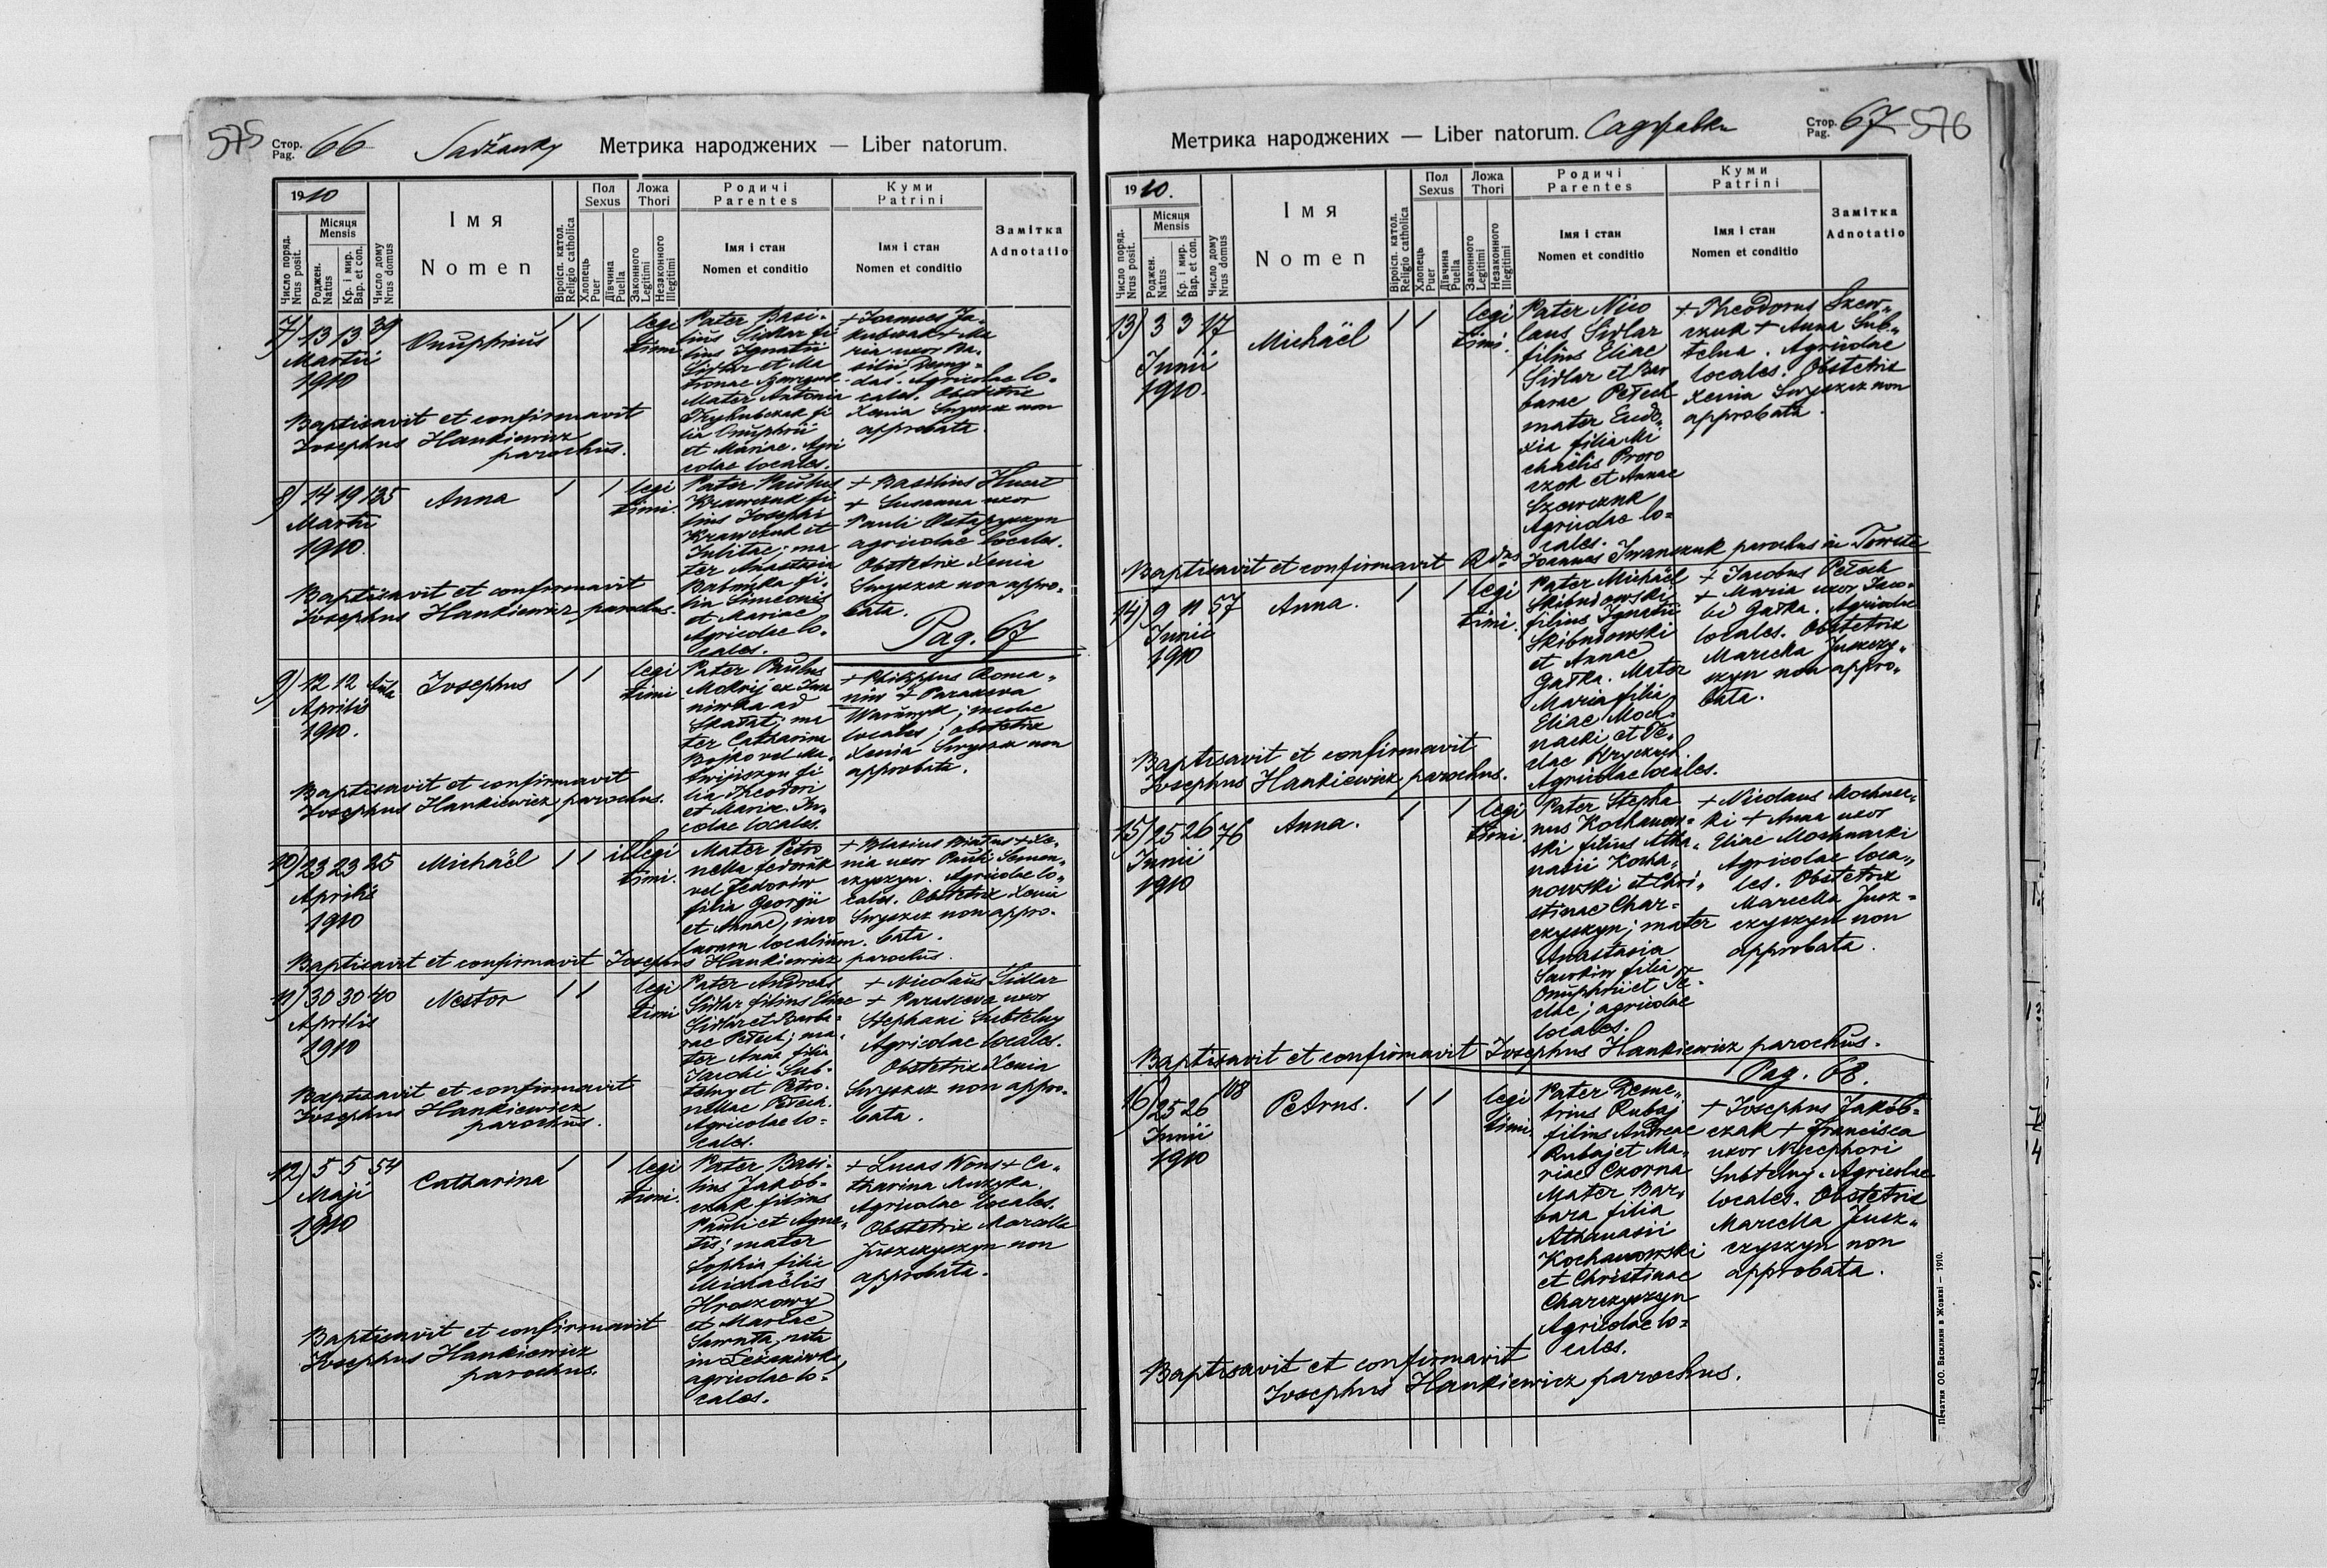 575
Стор.
Pag. 66 Sadžanky Метрика народжених — Liber natorum.
1910
Місяця
Mensis
Число поряд.
Nrus posit.
Роджен.
Natus
Кр. і мир.
Bap. et con.
Число дому
Nrus domus
Імя
Nomen
Віроісп. катол.
Religio catholica
Пол
Sexus
Хлопець
Puer
Дівчина
Puella
Ложа
Thori
Законного
Legitimi
Незаконного
Illegitimi
Родичі
Parentes
Імя і стан
Nomen et conditio
Куми
Patrini
Імя і стан
Nomen et conditio
Замітка
Adnotatio
7) 13 13 39
Martii
1910
Onuphrius
1 1
legi
timi
Pater Basi-
lius Sidlar fi-
lius Ignatii
Sidlar et Ma
tronae
Mater Antonia
Tryhubczak fi
lia Onuphrii
et Mariae. Agri
colae locales.
+ Joannes Ja-
kubczak + Ma
ria uxor Ba-
silii
Agricolae lo-
cales. Obstetrix
Xenia non
approbata.
Baptisavit et confirmavit
Josephus Hankiewicz
parochus.
8) 14 19 135
Martii
1910.
Anna
1 1
legi
timi.
Pater Paulus
Krawczuk fi
lius Josephi
Krawczuk et
Julitae; ma
ter Anastasia
fi-
lia Simeonis
et Mariae
Agricolae lo-
cales.
+ Basilius
+ Susanna uxor
Pauli Ostapyszyn
agricolae locales.
Obstetrix Xenia
non appro-
bata.
Pag. 67
Baptisavit et confirmavit
Josephus Hankiewicz parochus.
9) 12 12
Aprilis
1910.
Josephus
1 1
legi
timi
Pater Paulus
Mokrij ex
ad
Skałat; ma
ter Catharina
Bojko vel Ma-
twijiszyn fi
lia Theodori
et Mariae. In-
colae locales.
+ Philippus Roma-
niw + Parascewa
incolae
locales; obstetrix
Xenia non
approbata.
Baptisavit et confirmavit
Josephus Hankiewicz parochus.
10) 23 23 25
Aprilis
1910
Michaël
1 1
illegi
timi.
Mater Petro
nella Fedoruk
vel Fedoriw
filia Georgii
et Annae, inco
larum localium.
+ Blasius + Xe-
nia uxor Pauli Semen-
czyszyn. Agricolae lo-
cales. Obstetrix Xenia
non appro-
bata.
Baptisavit et confirmavit Josephus Hankiewicz parochus.
11) 30 30 40
Aprilis
1910
Nestor
1 1
legi
timi
Pater Andreas
Sidlar filius Eliae
Sidlar et Barba-
rae Petech; ma-
ter Anna filia
Jacobi Sub-
telny et Petro-
nellae Petech.
Agricolae lo-
cales.
+ Nicolaus Sidlar
+ Parascewa uxor
Stephani Subtelny
Agricolae locales.
Obstetrix Xenia
non appro-
bata.
Baptisavit et confirmavit
Josephus Hankiewicz
parochus.
12) 5 5 54
Maji
1910
Catharina
1 1
legi
timi.
Pater Basi-
lius Jakób-
czak filius
Pauli et Agne-
tis; mater
Sophia filia
Michaëlis
Hrockowy
et Mariae
nata
in Leżanówka,
agricolae lo-
cales.
+ Lucas Wons + Ca-
tharina Muzyka.
Agricolae locales.
Obstetrix Marcella
Juszczyszyn non
approbata.
Baptisavit et confirmavit
Josephus Hankiewicz
parochus.
Метрика народжених — Liber natorum. Саджавки Стор.
Pag. 67 576
1910.
Місяця
Mensis
Число поряд.
Nrus posit.
Роджен.
Natus
Кр. і мир.
Bap. et con.
Число дому
Nrus domus
Імя
Nomen
Віроісп. катол.
Religio catholica
Пол
Sexus
Хлопець
Puer
Дівчина
Puella
Ложа
Thori
Законного
Legitimi
Незаконного
Illegitimi
Родичі
Parentes
Імя і стан
Nomen et conditio
Куми
Patrini
Імя і стан
Nomen et conditio
Замітка
Adnotatio
13) 3 3 17
Junii
1910.
Michaël
1 1
legi
timi.
Pater Nico
laus Sidlar
filius Eliae
Sidlar et Bar
barae Petech
mater Eudo-
xia filia Mi
chaëlis Proro
czok et Annae
Szewczuk
Agricolae lo-
cales.
+ Theodorus Szew-
czuk + Anna Sub-
telna. Agricolae
locales. Obstetrix
Xenia non
approbata.
Baptisavit et confirmavit Rdus Joannes Iwanczuk parochus in Towste
14) 9 11 57
Junii
1910
Anna.
1 1
legi
timi.
Pater Michaël
Skibniowski
filius Ignatii
Skibniowski
et Annae
Gałka. Mater
Maria filia
Eliae Moch-
nacki et Te-
clae Hryczuch
Agricolae locales.
+ Jacobus Petech
+ Maria uxor Jaco-
bi Gałka. Agricolae
locales. Obstetrix
Marcella Juszczy-
szyn non appro-
bata.
Baptisavit et confirmavit
Josephus Hankiewicz parochus.
15) 25 26 76
Junii
1910
Anna.
1 1
legi
timi.
Pater Stepha
nus Kochanow-
ski filius Atha-
nasii Kocha-
nowski et Chri-
stinae Char-
czyszyn; mater
Anastasia
Sawkiw filia
Onuphrii et Te-
clae; agricolae
locales.
+ Nicolaus Mochnac-
ki + Anna uxor
Eliae Mochnacki
Agricolae loca-
les. Obstetrix
Marcella Jusz-
czyszyn non
approbata.
Baptisavit et confirmavit Josephus Hankiewicz parochus.
Pag. 68.
16) 25 26 108
Junii
1910
Petrus.
1 1
legi
timi.
Pater Deme-
trius Rubaj
filius Andreae
Rubaj et Ma-
riae Czorna
Mater Bar-
bara filia
Athanasii
Kochanowski
et Christinae
Charczyszyn
Agricolae lo-
cales.
+ Josephus Jakób-
czak + Francisca
uxor Nicephori
Subtelny. Agricolae
locales. Obstetrix
Marcella Jusz-
czyszyn non
approbata.
Baptisavit et confirmavit
Josephus Hankiewicz parochus.
Печатня ОО. Василиян в Жовкві — 1910.